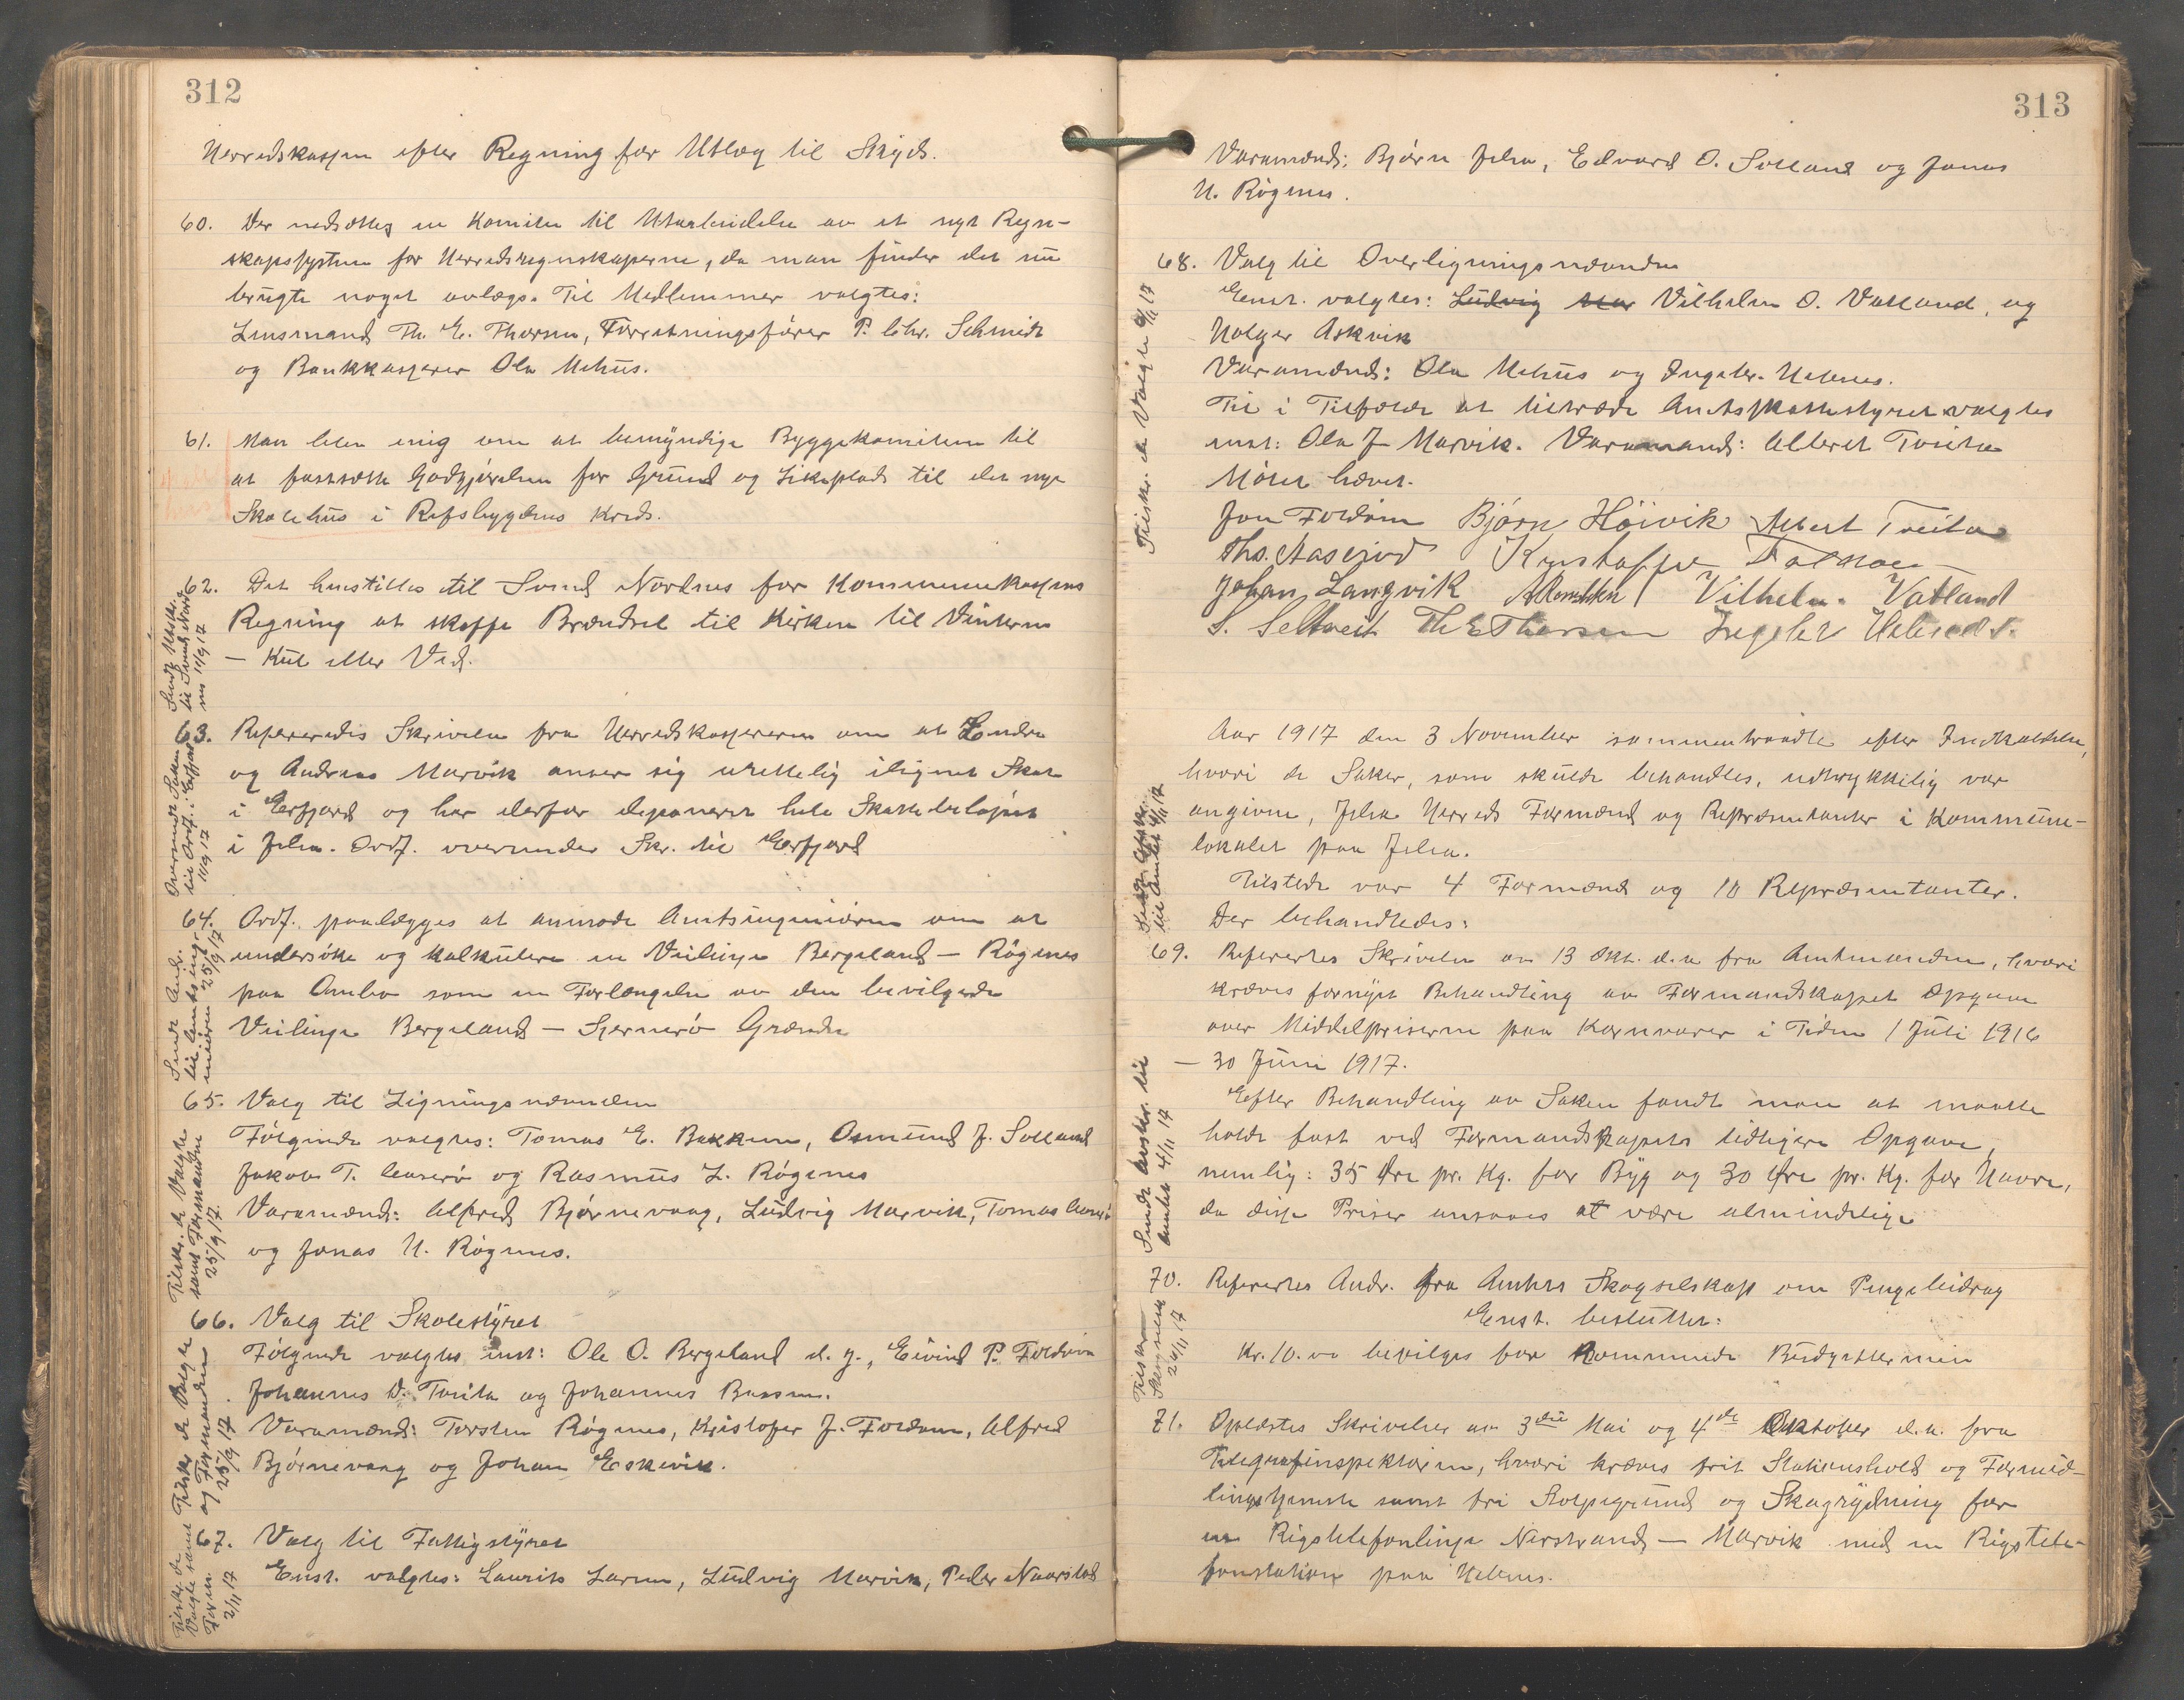 312
Herredskassen efter Regning for Utlæg til Skyds.
60. Der nedsættes en Komite til Utarbeidelse av et nyt Regn-
skapssystem for Herredsregnskaperne, da man finder det nu
brugte noget avlægs. Til Medlemmer valgtes:
Lensmand Th. E. Thorsen, Forretningsfører P. Chr. Schmidt
og Bankkasserer Ola Mehus.
61. Man blev enig om at bemyndige Byggekomiteen til
at fastsætte Godtgjørelsen for Grund og Likeplads til det nye
Skolehus i Refsbygdens Kreds.
62. Det henstilles til Svend Nordnes for Kommunekassens
Regning at skaffe Brændsel til Kirken til Vinteren
— Kul eller Ved.
Sendt Utskr.
til Svend Nord-
nes 11/9 17
63. Refereredes Skrivelse fra Herredskassereren om at Endre
og Andreas Marvik anser sig urettelig ilignet Skat
i Erfjord og har derfor deponeret hele Skattebeløpet
i Jelsa. Ordf. oversender Skr. til Erfjord
Oversendt Saken
til Ordf. i Erfjord
11/9 17
64. Ordf. paalægges at anmode Amtsingeniøren om at
undersøke og kalkulere en Veilinje Bergeland — Røgenes
paa Ombo som en Forlængelse av den bevilgede
Veilinje Bergeland — Sjernerø Grændse
Sendt Andr.
til Amtsinge-
niøren 25/9 17
65. Valg til Ligningsnævnden
Følgende valgtes: Tomas E. Bakken, Osmund J. Solland
Jakob T. Aaserø og Rasmus L. Røgenes
Varamænd: Alfred Bjørnevaag, Ludvig Marvik, Tomas Aaserø
og Jonas H. Røgenes.
Tilskr. de Valgte
samt Formanden
25/9 17
66. Valg til Skolestyret
Følgende valgtes enst: Ole O. Bergeland d. y., Eivind P. Foldøen
Johannes D. Tveita og Johannes Bassen.
Varamænd: Torsten Røgenes, Kristofer J. Fordam, Alfred
Bjørnevaag og Johan Eskevik.
Tilskr de Valgte
og Formanden
25/9 17.
67. Valg til Fattigstyret
Enst. valgtes: Laurits Larsen, Ludvig Marvik, Peder Naarstad
Tilskr. de
Valgte samt
Form.
2/11 17
313
Varamænd: Bjørn Jelsa, Edvard O. Solland og Jonas
H. Røgenes.
68. Valg til Overligningsnævnden
Enst. valgtes: Ludvig Mar Vilhelm O. Vatland, og
Holger Askvik
Varamænd: Ola Mehus og Ingebr. Hebnes.
Til i Tilfælde at tiltræde Amtsskattestyret valgtes
enst: Ola J Marvik. Varamand: Albert Tveita
Møtet hævet.
Tilskr. de Valgte 2/11 17
Jon Fordam Bjørn Höivik Albert Tveita
Ths. Aaserød Kristoffer
Johan Langvik Vilhelm. Vatland
S. Seltveit Th E Thorsen Ingebr Hebnes
Aar 1917 den 3 November sammentraadte efter Indkaldelse,
hvori de Saker, som skulde behandles, udtrykkelig var
angivne, Jelsa Herreds Formænd og Repræsentanter i Kommune-
lokalet paa Jelsa.
Tilstede var 4 Formænd og 10 Repræsentanter.
Der behandledes:
til Amtet 4/11 17
69. Refereres Skrivelse av 13 Okt. d.a fra Amtmanden, hvori
kræves fornyet Behandling av Formandskapet Opgave
over Middelpriserne paa Kornvarer i Tiden 1 Juli 1916
— 30 Juni 1917.
Efter Behandling av Saken fandt man at maatte
holde fast ved Formandskapets tidligere Opgave,
nemlig: 35 Øre pr. Kg. for Byg og 30 Øre pr. Kg. for Havre,
da disse Priser ansees at være almindelige
Sendt Avskr. til
Amtet 4/11 17
70. Refereres Andr. fra Amtets Skogselskap om Pengebidrag
Enst. besluttet:
Kr. 10.00 bevilges for kommende Budgettermin
Tilskr.
24/11 17
71. Oplæstes Skrivelser av 3die Mai og 4de Oktober d.a. fra
Telegrafinspektøren, hvori kræves frit Stationshold og Formid-
lingstjeneste samt fri Stolpegrund og Skogrydning for
en Rigstelefonlinje Nerstrand — Marvik med en Rigstele-
fonstation paa Hebnes.